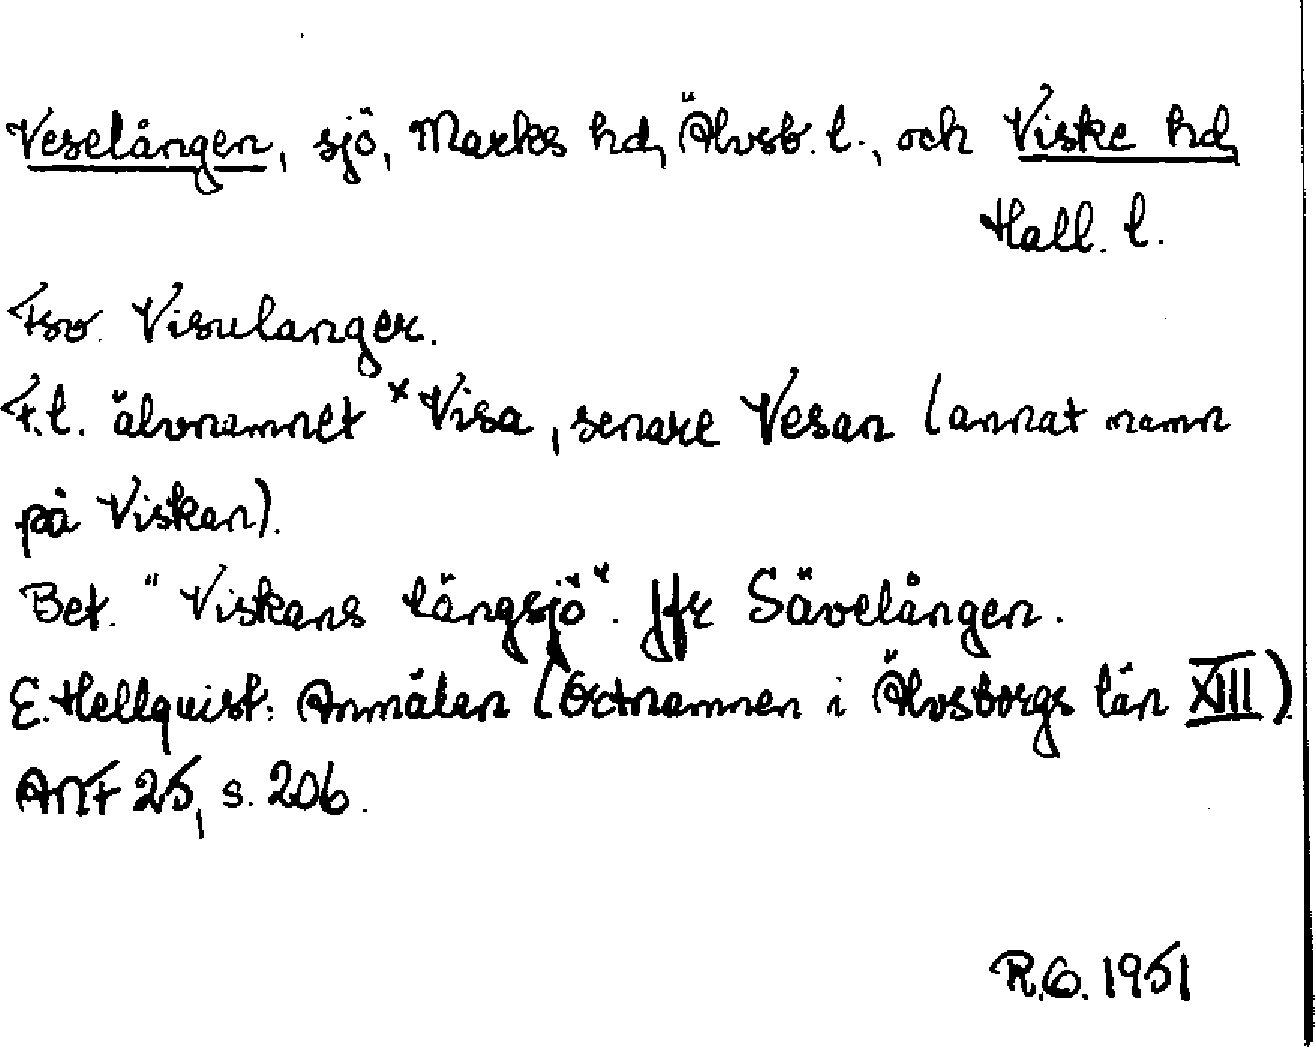 Veselången, sjö, Marks hd, Älvsb. l., och Viske hd,
Hall. l.
Fsv. Visulanger.
F.l. älvnamnet *Visa, senare Vesan (annat namn
på Viskan).
Bet. "Viskans långsjö". Jfr Sävelången.
E. Hellquist: Anmälan (Ortnamnen i Älvsborgs län XIII).
ANF 25, s. 206.
R.G. 1951